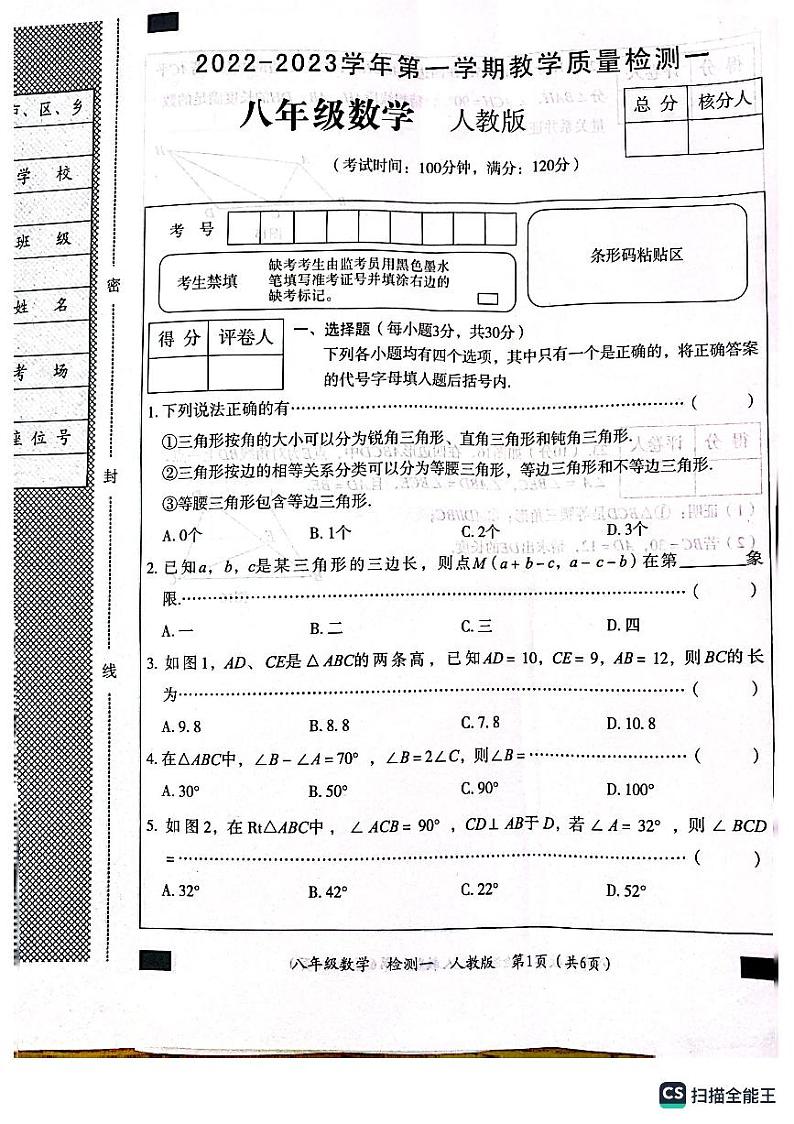 2022-2023学年第一学期教学质量检测一
八年级数学 人教版
(考试时间：100分钟，满分：120分)
总 分 核分人
市、区、乡
学 校
班 级
姓 名
考 场
座 位 号
密
封
线
考 号
条形码粘贴区
考生禁填
缺考考生由监考员用黑色墨水
笔填写准考证号并填涂右边的
缺考标记。
得 分 评卷人
一、选择题(每小题3分，共30分)
下列各小题均有四个选项，其中只有一个是正确的，将正确答案
的代号字母填入题后括号内.
1. 下列说法正确的有………………………………( )
①三角形按角的大小可以分为锐角三角形、直角三角形和钝角三角形.
②三角形按边的相等关系分类可以分为等腰三角形，等边三角形和不等边三角形.
③等腰三角形包含等边三角形.
A. 0个 B. 1个 C. 2个 D. 3个
2. 已知a，b，c是某三角形的三边长，则点M(a+b-c，a-c-b)在第______象
限.………………………………( )
A. 一 B. 二 C. 三 D. 四
3. 如图1，AD、CE是△ABC的两条高，已知AD=10，CE=9，AB=12，则BC的长
为………………………………( )
A. 9.8 B. 8.8 C. 7.8 D. 10.8
4. 在△ABC中，∠B-∠A=70°，∠B=2∠C，则∠B=………………( )
A. 30° B. 50° C. 90° D. 100°
5. 如图2，在Rt△ABC中，∠ACB=90°，CD⊥AB于D，若∠A=32°，则∠BCD
=………………………………( )
A. 32° B. 42° C. 22° D. 52°
八年级数学 检测一 人教版 第1页(共6页)
CS 扫描全能王